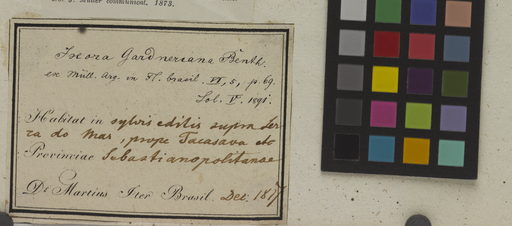 Müller communicat. 1873.
Ixora Gardneriana Benth.
ex Müll. Arg. in Fl. brasil. VI, 5, p. 69.
Habitat in sylvis editis supra Ser
ra do Mar, prope Tacasava etc
Provinciae Sebastianopolitanae
Dr Martius Iter Brasil. Dec. 181